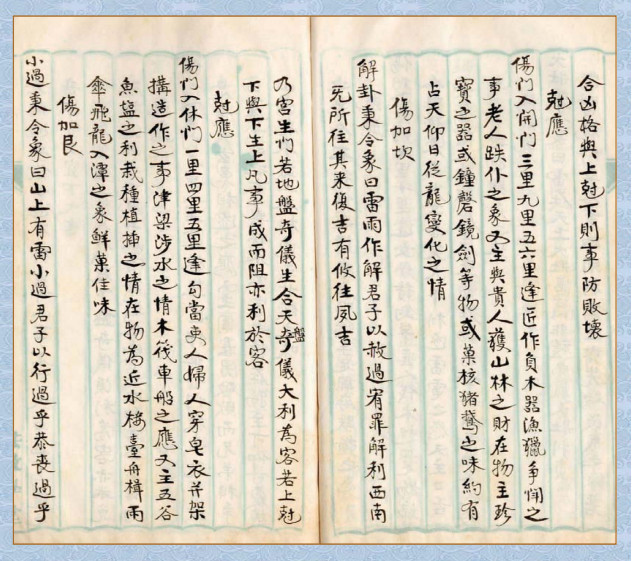 合凶格與上尅下則事防敗壞
尅應
傷門入開門三里九里五六里逢匠作負木器漁獵爭鬧之
事老人跌仆之象又主與貴人獲山林之財在物主珍
寶之器或鐘磬鏡劍等物或菓核豬鵞之味約有
占天仰日從龍變化之情
傷加坎
解卦秉令象曰雷雨作解君子以赦過宥罪解利西南
旡所往其来復吉有攸往夙吉
乃宮生門若地盤奇儀生合天盤奇儀大利為客若上尅
下與下生上凡事成而阻亦利於客
尅應
傷門入休門一里四里五里逢勾當吏人婦人穿皂衣并架
搆造作之事津梁涉水之情木筏車船之應又主五谷
魚塩之利栽種植揷之情在物為近水楼臺舟楫雨
傘飛龍入潭之象鮮菓佳味
傷加艮
小過秉令象曰山上有雷小過君子以行過乎恭丧過乎